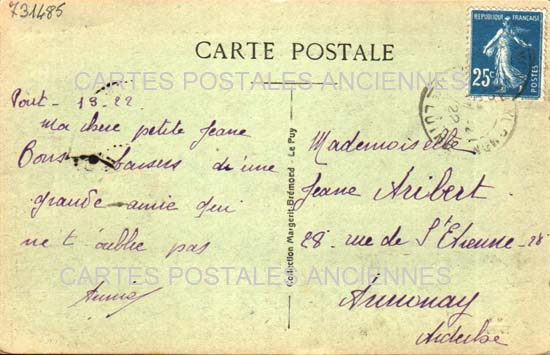 731485
REPUBLIQUE FRANÇAISE
25c
CARTE POSTALE
CARTES POSTALES ANCIENNES
19-22
Ma chere petite Jeane
Bons baisers d'une
grande amie qui
ne t'oublie pas
Collection Margerit-Brémond - Le Puy
Mademoiselle
Jeane Aribert
28 - rue de St Etienne - 28
Annonay
Ardeche
CARTES POSTALES ANCIENNES